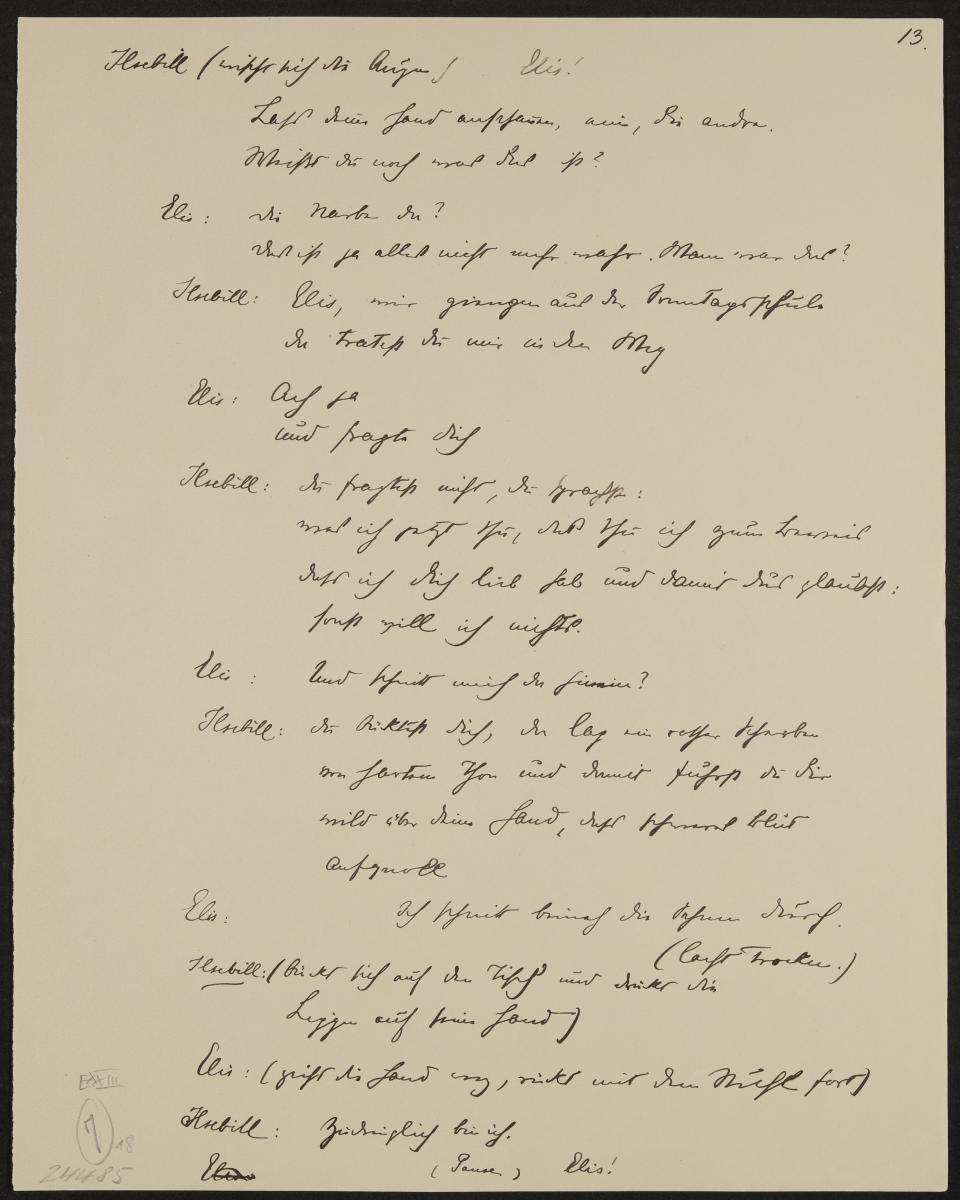 13.
Ilsebill (wischt sich die Augen) Elis!
Lass deine Hand anschauen, nein, die andre.
Weißt du noch was das ist?
Elis: die Narbe da?
das ist ja alles nicht mehr wahr. Wann war das?
Ilsebill: Elis, wir giengen aus der Sonntagsschule
da tratest du mir in den Weg
Elis: Ach ja
und fragte dich
Ilsebill: du fragtest nicht, du sprachst:
was ich jetzt thu, das thu ich zum Beweis
dass ich dich lieb hab und damit du's glaubst:
sonst will ich nichts.
Elis: Und schnitt mich da hinein?
Ilsebill: du bücktest dich, da lag ein rother Scherben
von hartem Thon und damit fuhrst du dir
wild über deine Hand, dass schwarzes Blut
aufquoll
Elis: Ich schnitt beinah die Sehnen durch.
(lacht trocken.)
Ilsebill: (bückt sich auf den Tisch und drückt die
Lippen auf seine Hand)
Elis: (zieht die Hand weg, rückt mit dem Stuhl fort)
Ilsebill: Zudringlich bin ich.
Elis (Pause) Elis!
E III
7
18
24485